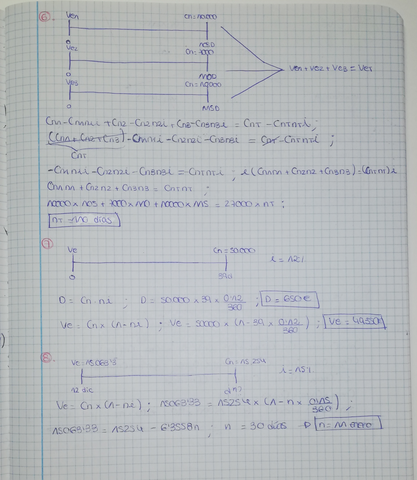 ⑥.
Ve1 Cn=10000
0 105D
Ve2 Cn=7000
0 110D
Ve3 Cn=10000
0 115D
Ve1+Ve2+Ve3=VeT
Cn1-Cn1n1i+Cn2-Cn2n2i+Cn3-Cn3n3i=CnT-CnTnTi;
(Cn1+Cn2+Cn3)-Cn1n1i-Cn2n2i-Cn3n3i=CnT-CnTnTi;
CnT
-Cn1n1i-Cn2n2i-Cn3n3i=-CnTnTi; i(Cn1n1+Cn2n2+Cn3n3)=(CnTnT)i
Cn1n1+Cn2n2+Cn3n3=CnTnT;
10000×105+7000×110+10000×115=27000×nT;
nT=110 días
⑦
Ve Cn=50.000 i=12%
0 39d
D=Cn·ni; D=50000×39×0.12/360; D=650€
Ve=Cn×(1-ni); Ve=50000×(1-39×0.12/360); Ve=49350€
⑧
Ve=15063'33 Cn=15.254 i=15%
12 dic
Ve=Cn×(1-ni); 15063'33=15254×(1-n×0.15/360);
15063'33=15254-6'3558n; n=30 días → n=11 enero